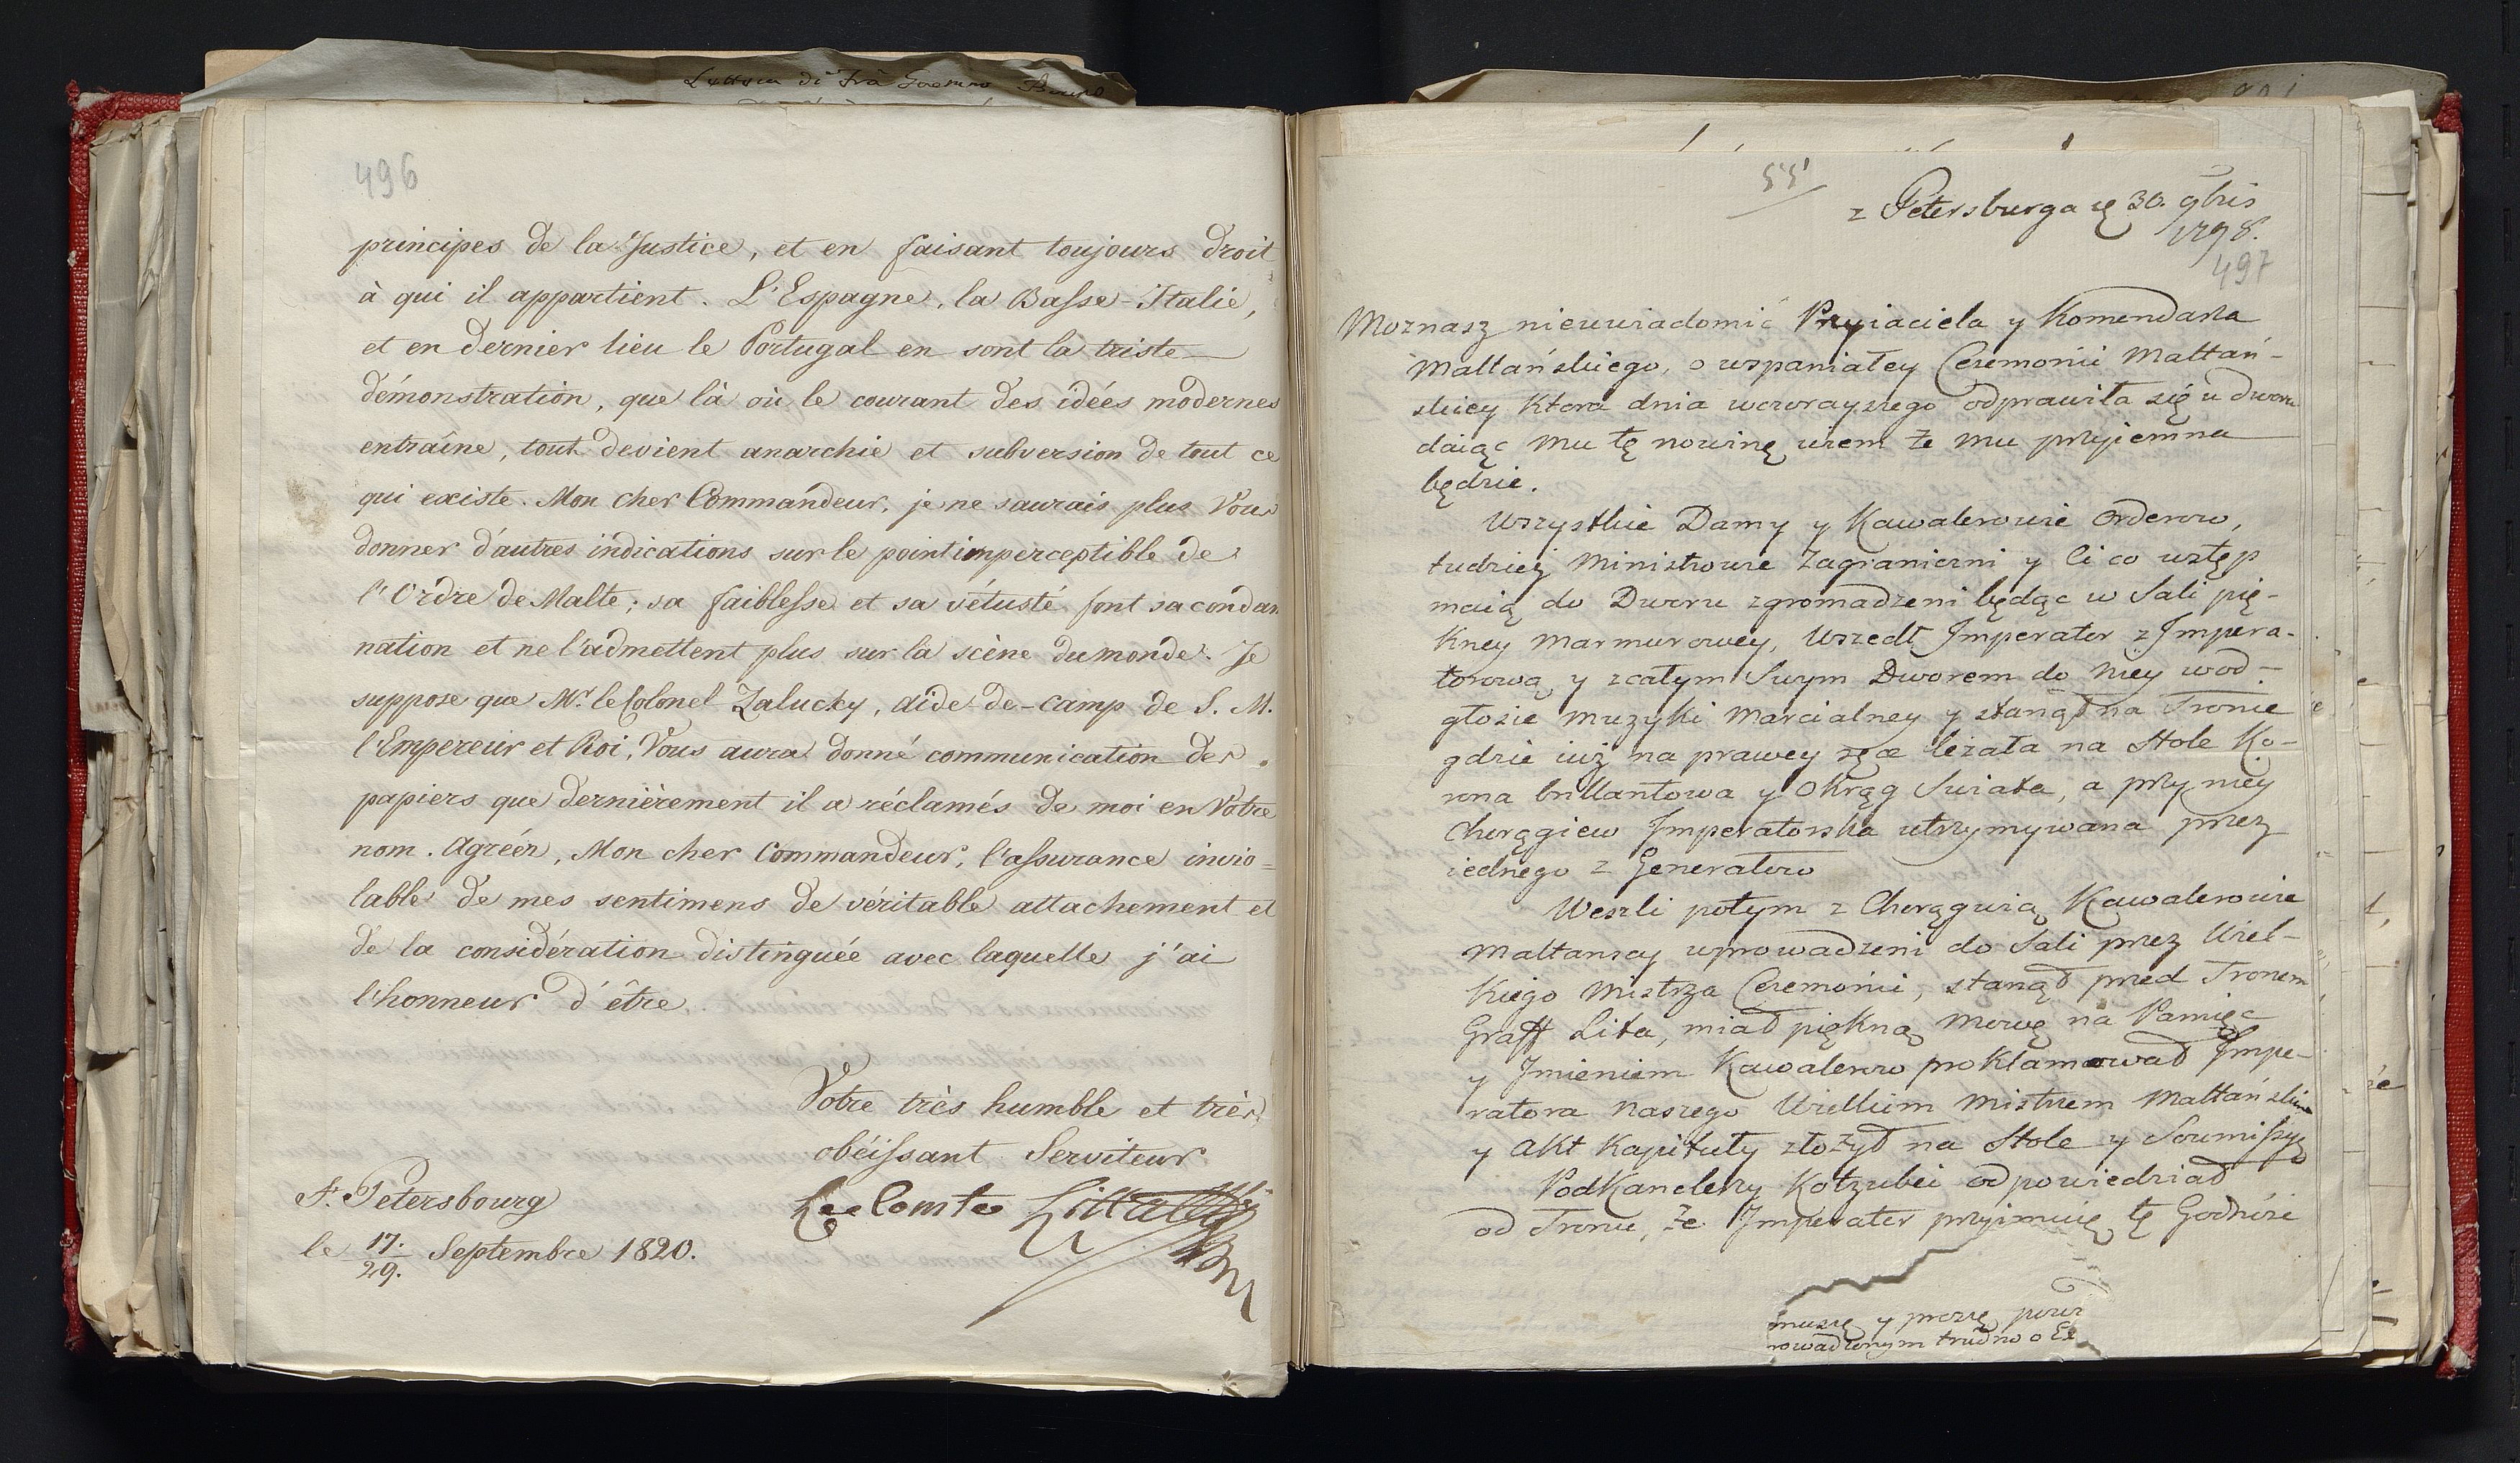 Lettera di Frà
496
principes de la Justice, et en faisant toujours droit
à qui il appartient. L'Espagne, la Basse-Italie,
et en dernier lieu le Portugal en sont la triste
démonstration, que là où le courant des idées modernes
entraîne, tout devient anarchie et subversion de tout ce
qui existe. Mon cher Commandeur, je ne saurais plus Vous
donner d'autres indications sur le point imperceptible de
l'Ordre de Malte; sa faiblesse et sa vétusté font sa condam
nation et ne l'admettent plus sur la scène du monde. Je
suppose que Mr. le Colonel Zalucky, aide-de-camp de S. M.
l'Empereur et Roi, Vous aura donné communication des
papiers que dernièrement il a réclamés de moi en Votre
nom. Agréez, Mon cher Commandeur, l'assurance invio=
lable de mes sentimens de véritable attachement et
de la considération distinguée avec laquelle j'ai
l'honneur d'être.
Votre très humble et très
obéissant Serviteur
Le Comte Litta
St. Petersbourg
le 17./29. Septembre 1820.
551
z Petersburga 30. 9bris
1798.
497
Moznasz nieuwiadomić Przyiaciela y Komendarza
Maltańskiego, o wspaniałey Ceremonii Maltań-
skiey Ktora dnia wczorayszego odprawiła się u dworu
daiąc mu tę nowinę wiem że mu przyiemna
będzie.
Wszystkie Damy y Kawalerowie Orderow,
tudzież Ministrowie Zagraniczni y Ci co wstęp
maią do Dworu zgromadzeni będąc w Sali pię-
Kney Marmurowey, Wszedł Imperator z Impera-
torową y z całym Swym Dworem do niey w od-
głosie muzyki Marcialney y stanął na Tronie
gdzie iuż na prawey ręce leżała na Stole Ko-
rona brillantowa y Okrąg Swiata, a przy niey
Chorągiew Imperatorska utrzymywana przez
iednego z Generałow
Weszli potym z Chorągwią Kawalerowie
Maltanscy wprowadzeni do Sali przez Wiel-
Kiego Mistrza Ceremonii, stanął przed Tronem
Graff Lita, miał piękną Mowę na Pamięć
y Imieniem Kawalerow proklamował Impe-
ratora naszego Wielkim Mistrzem Maltańskim
y Akt Kapituły złożył na Stole y Soumissyę
Podkanclerzy Kotzubei odpowiedział
od Tronu, że Imperator przyimuię tę Godność
muszę y proszę
rowadzonym trudno o